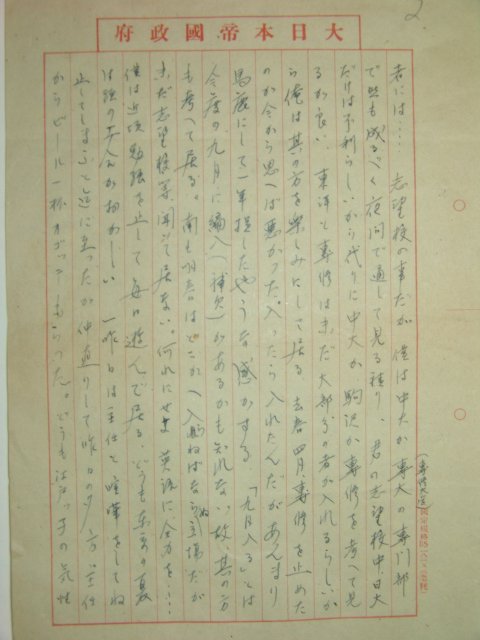 2
大日本帝國政府
者には‥‥志望校の事だが僕は中大か専大の専门部
(専修大学)
で兎も成るべく夜间で通して見る積り、君の志望校中日大
だけは不利らしいから代りに中大か駒沢か専修を考へて見
るが良い、東洋と専修はまだ大部分の者が入れるらしいか
ら俺は其の方を楽しみにして居る 去春四月専修を止めた
のが今から思へば悪かった、入ったら入れたんだがあんまり
馬鹿にして一年損したやうな感がする、「九月入る」とは
今度の九月に編入(補欠)があるかも知れない故、其の方
も考へて居る。尚も明春はどこかへ入らねばならぬ立場だが
まだ志望校等、開いて居ない。何れにせよ英語に全力を‥‥
僕は近頃勉強を止して毎日遊んで居る、どうも東京の夏
は強の
一昨日は主任と喧嘩をしてね
止してしまふと迄に立ったが仲直りして昨日の夕方主任
からビール一杯オゴッテもらった。どうも江戸っ子の気性